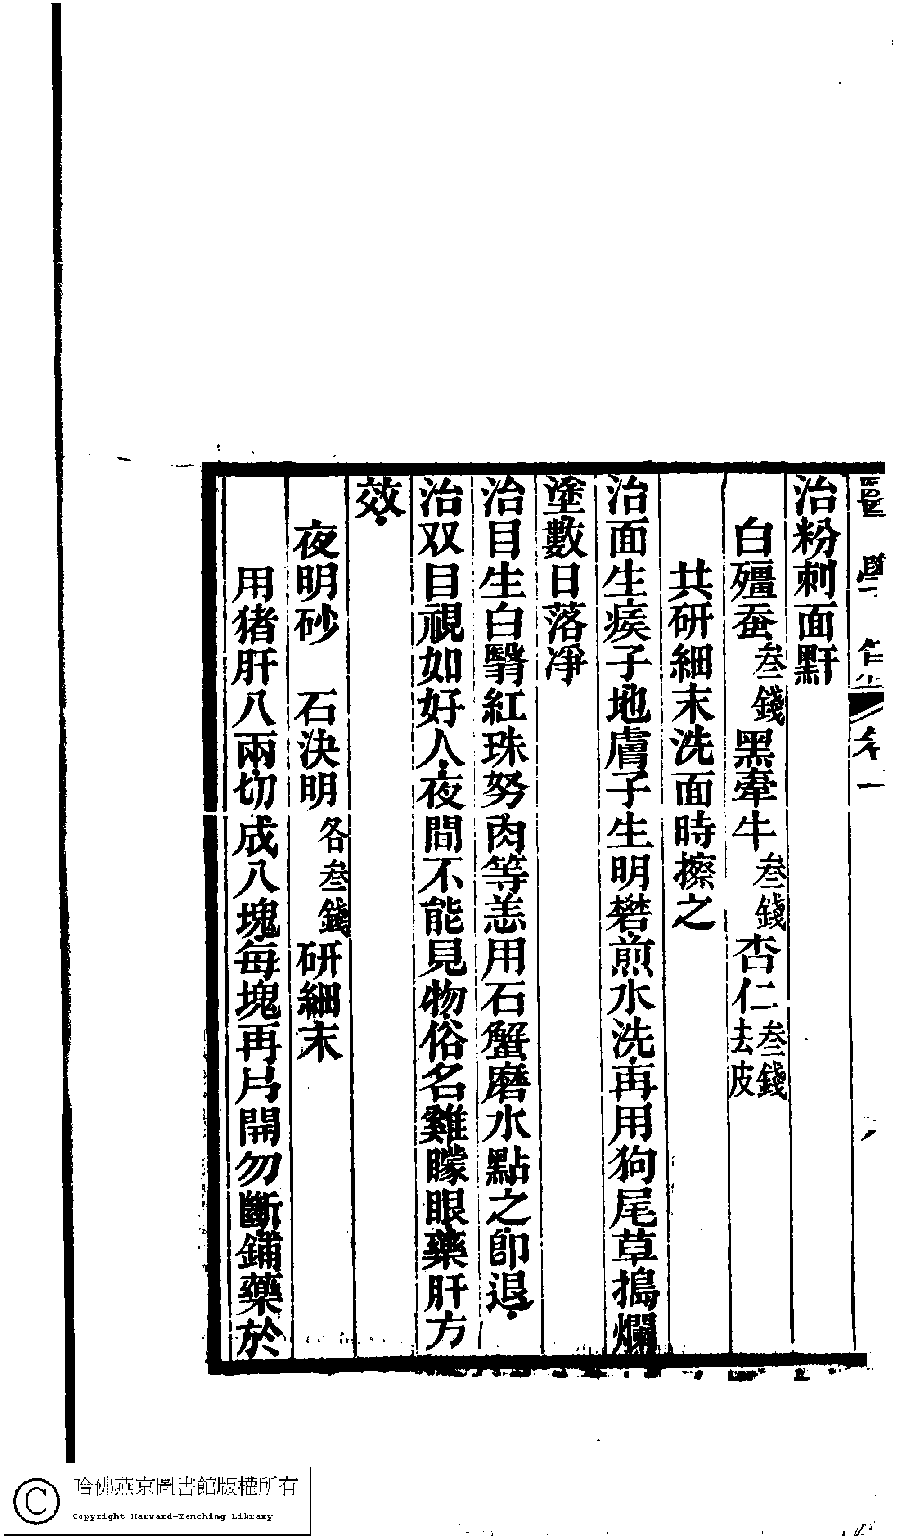 治粉刺面䵟
白殭蚕叁錢黑牽牛叁錢杏仁叁錢去皮
共研細末洗面時擦之
治面生疾子地膚子生明礬煎水洗再用狗尾草搗爛
塗數日落凈
治目生白翳紅珠努肉等恙用石蟹磨水點之卽退
治双目視如好人夜間不能見物俗名雞矇眼藥肝方
效
夜明砂 石決明各叁錢研細末
用猪肝八兩切成八塊每塊再片開勿斷鋪藥於
卷一
哈佛燕京圖書館版權所有
Copyright Harvard-Yenching Library